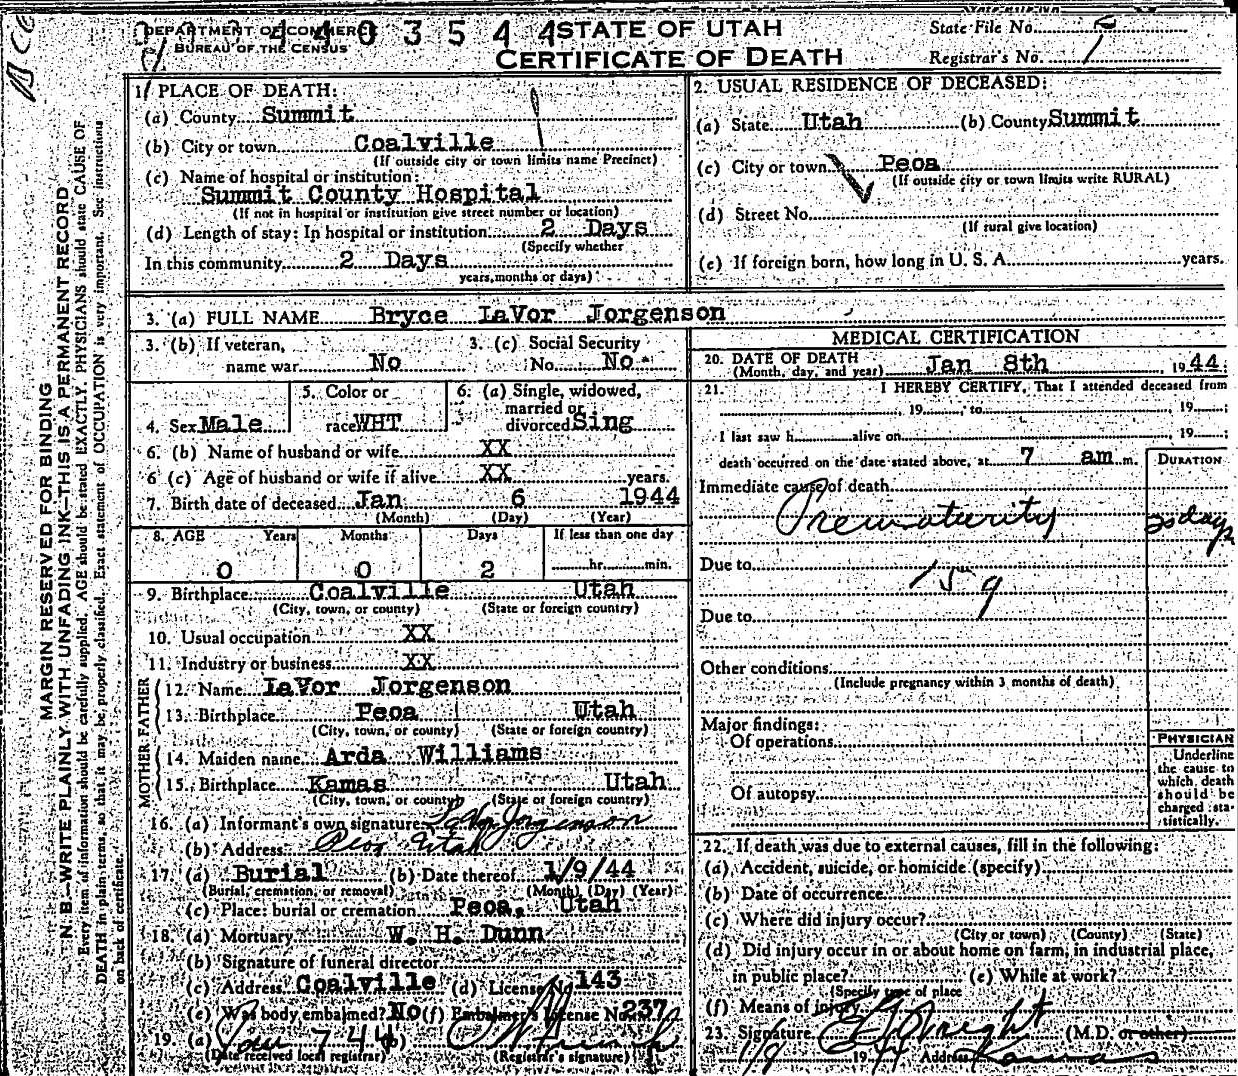 DEPARTMENT OF COMMERCE
BUREAU OF THE CENSUS
4 4 0 3 5 4 4
STATE OF UTAH
CERTIFICATE OF DEATH
State File No. 5
Registrar's No. 1
MARGIN RESERVED FOR BINDING
N. B.—WRITE PLAINLY WITH UNFADING INK—THIS IS A PERMANENT RECORD
Every item of information should be carefully supplied. AGE should be stated EXACTLY. PHYSICIANS should state CAUSE OF
DEATH in plain terms, so that it may be properly classified. Exact statement of OCCUPATION is very important. See instructions
on back of certificate.
1. PLACE OF DEATH:
(a) County Summit
(b) City or town Coalville
(If outside city or town limits name Precinct)
(c) Name of hospital or institution:
Summit County Hospital
(If not in hospital or institution give street number or location)
(d) Length of stay: In hospital or institution 2 Days
(Specify whether
In this community 2 Days
years, months or days)
2. USUAL RESIDENCE OF DECEASED:
(a) State Utah (b) County Summit
(c) City or town Peoa
(If outside city or town limits write RURAL)
(d) Street No.
(If rural give location)
(e) If foreign born, how long in U. S. A. years.
3. (a) FULL NAME Bryce LaVor Jorgenson
3. (b) If veteran, 3. (c) Social Security
name war No No. No
4. Sex Male
5. Color or
race WHT
6. (a) Single, widowed,
married or
divorced Sing
6. (b) Name of husband or wife XX
6 (c) Age of husband or wife if alive XX years.
7. Birth date of deceased Jan 6 1944
(Month) (Day) (Year)
8. AGE Years Months Days If less than one day
0 0 2 hr. min.
9. Birthplace Coalville Utah
(City, town, or county) (State or foreign country)
10. Usual occupation XX
11. Industry or business XX
FATHER
12. Name LaVor Jorgenson
13. Birthplace Peoa Utah
(City, town, or county) (State or foreign country)
MOTHER
14. Maiden name Arda Williams
15. Birthplace Kamas Utah
(City, town, or county) (State or foreign country)
16. (a) Informant's own signature LaVor Jorgenson
(b) Address Peoa Utah
17. (a) Burial (b) Date thereof 1/9/44
(Burial, cremation, or removal) (Month) (Day) (Year)
(c) Place: burial or cremation Peoa, Utah
18. (a) Mortuary W. H. Dunn
(b) Signature of funeral director
(c) Address Coalville (d) License No 143
(e) Was body embalmed? No (f) Embalmer's License No. 237
19. (a) Jan 7 44 (b)
(Date received local registrar) (Registrar's signature)
MEDICAL CERTIFICATION
20. DATE OF DEATH
(Month, day, and year) Jan 8th , 1944;
21. I HEREBY CERTIFY, That I attended deceased from
, 19 , to , 19 ;
I last saw h alive on , 19 ;
death occurred on the date stated above, at 7 am m.
DURATION
Immediate cause of death
Prematurity
Due to 159
Due to
Other conditions
(Include pregnancy within 3 months of death)
Major findings:
Of operations
Of autopsy
PHYSICIAN
Underline
the cause to
which death
should be
charged sta-
tistically.
22. If death was due to external causes, fill in the following:
(a) Accident, suicide, or homicide (specify)
(b) Date of occurrence
(c) Where did injury occur?
(City or town) (County) (State)
(d) Did injury occur in or about home on farm, in industrial place,
in public place? (e) While at work?
(Specify type of place
(f) Means of injury
23. Signature (M.D. or other)
1/9 1944 Address Kamas